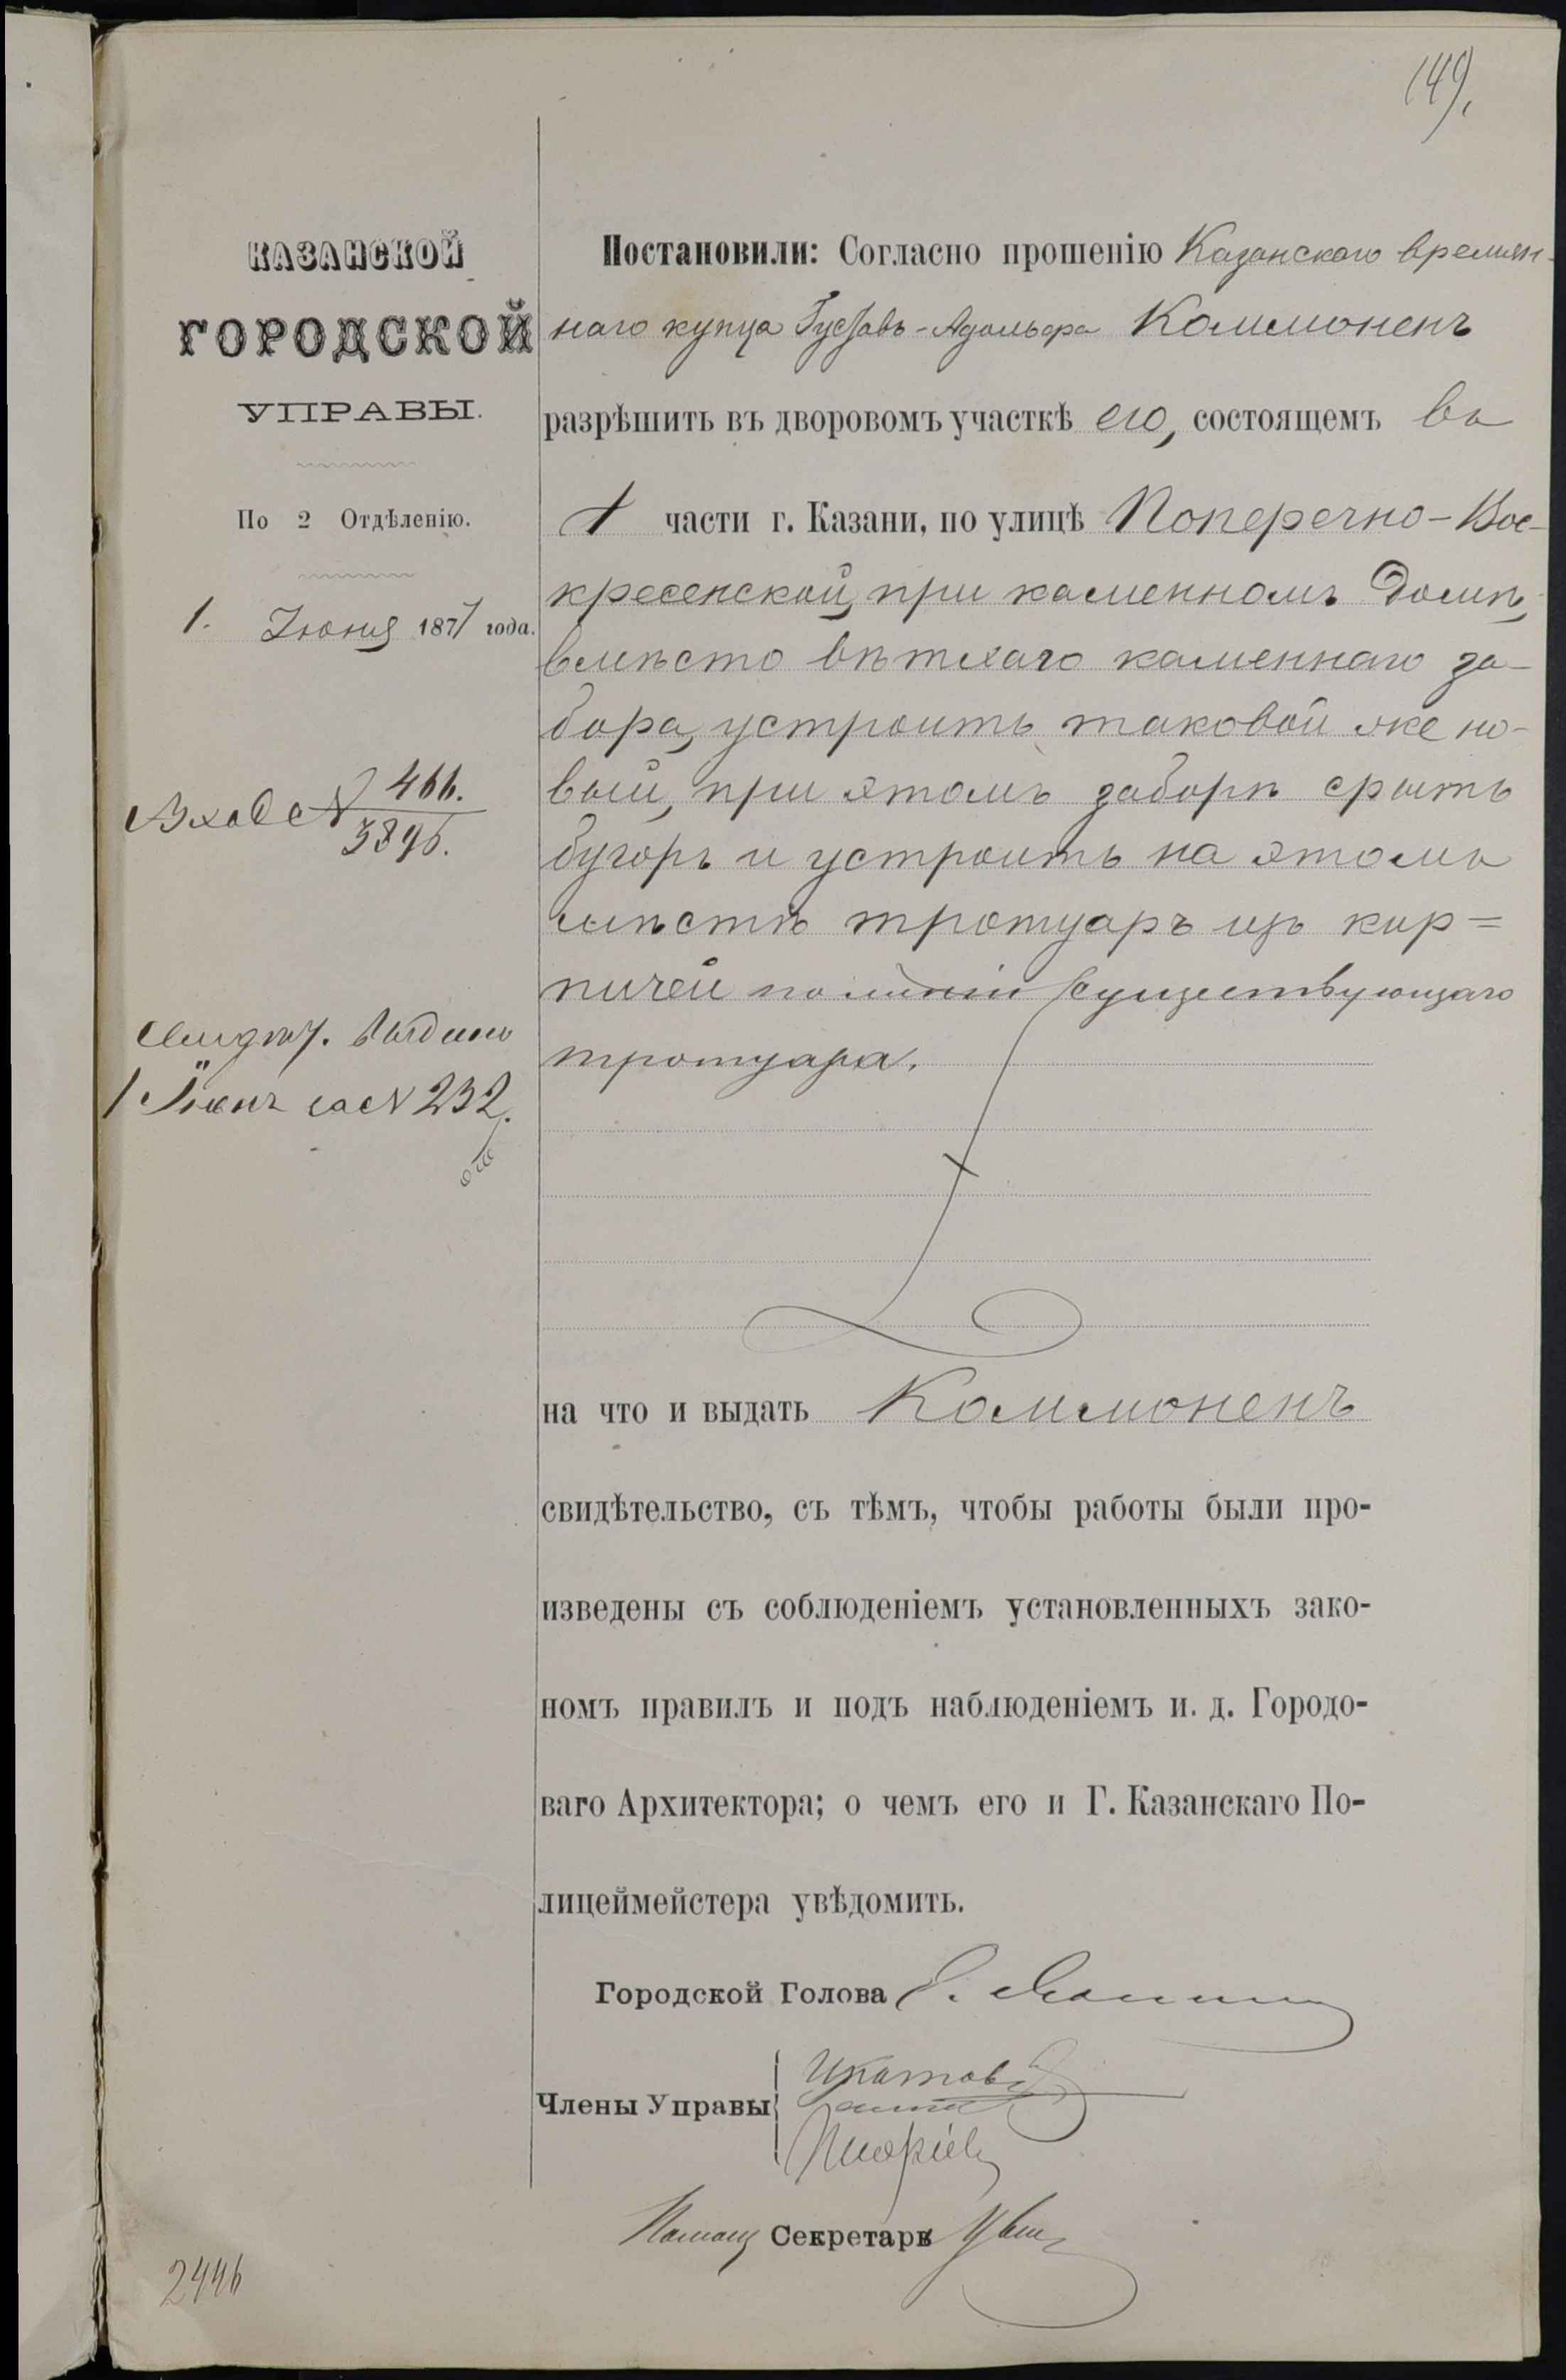 149.
КАЗАНСКОЙ
ГОРОДСКОЙ
УПРАВЫ.
По 2 Отдѣленію.
1. Іюня 1877 года.
Вход №466.
3896.
выдано
1 Іюня за №232.
Постановили: Согласно прошенію Казанскаго времян-
наго купца Густавъ-Адольфа Коммоненъ
разрѣшить въ дворовомъ участкѣ его, состоящемъ въ
1 части г. Казани, по улицѣ Поперечно-Вос-
кресенской, при каменномъ домѣ,
вмѣсто вѣтхаго каменнаго за-
бора, устроить таковой же но-
вый, при этомъ заборѣ срыть
бугоръ и устроить на этомъ
мѣстѣ тротуаръ изъ кир=
пичей по линіи существующаго
тротуара.
на что и выдать Коммоненъ
свидѣтельство, съ тѣмъ, чтобы работы были про-
изведены съ соблюденіемъ установленныхъ зако-
номъ правилъ и подъ наблюденіемъ и. д. Городо-
ваго Архитектора; о чемъ его и Г. Казанскаго По-
лицеймейстера увѣдомить.
Городской Голова
Члены Управы
Помощ Секретаря
2446